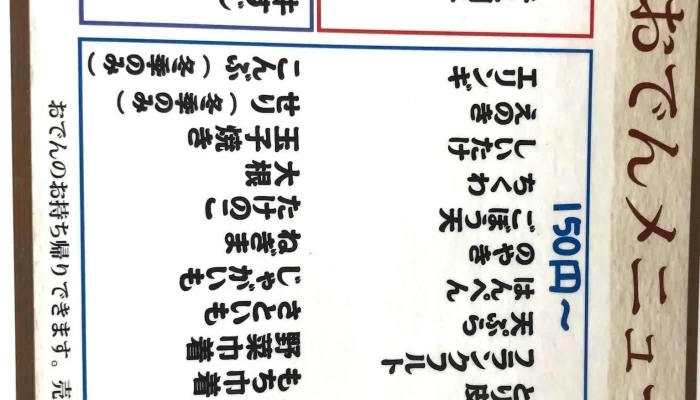 おでんメニュー
150円〜
エリンギ
えのき
しいたけ
ちくわ
ごぼう天
のやき
はんぺん
天ぷら
フランクフルト
とり皮
こんぶ（冬季のみ）
せり（冬季のみ）
玉子焼き
大根
たけのこ
ねぎま
じゃがいも
さといも
野菜巾着
もち巾着
おでんのお持ち帰りできます。売